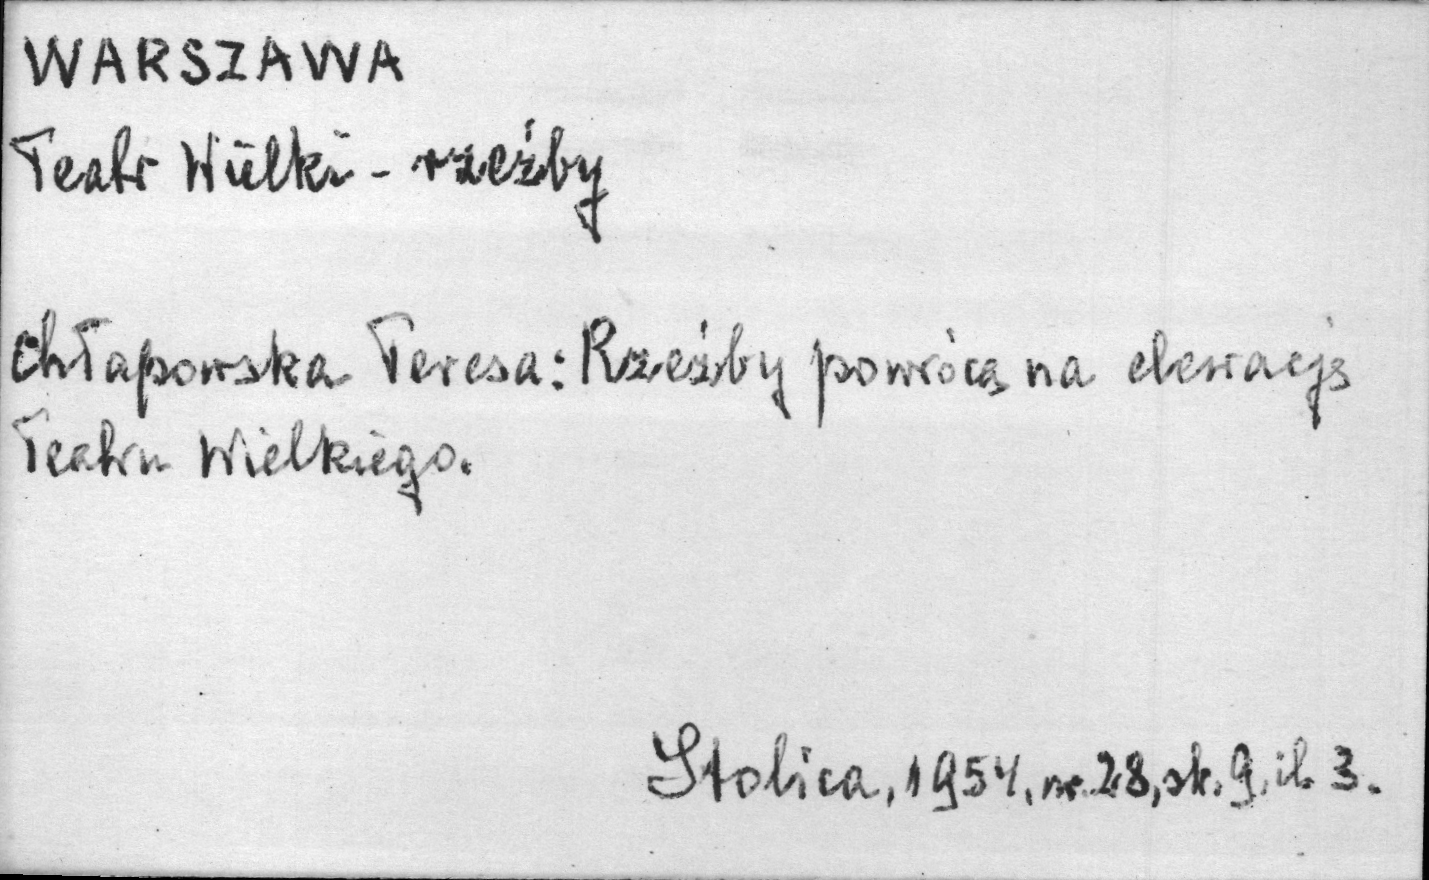 WARSZAWA
Teatr Wielki - rzeźby
Chłapowska Teresa: Rzeźby powrócą na elewację
Teatru Wielkiego.
Stolica, 1954, nr. 28, str. 9, il. 3.